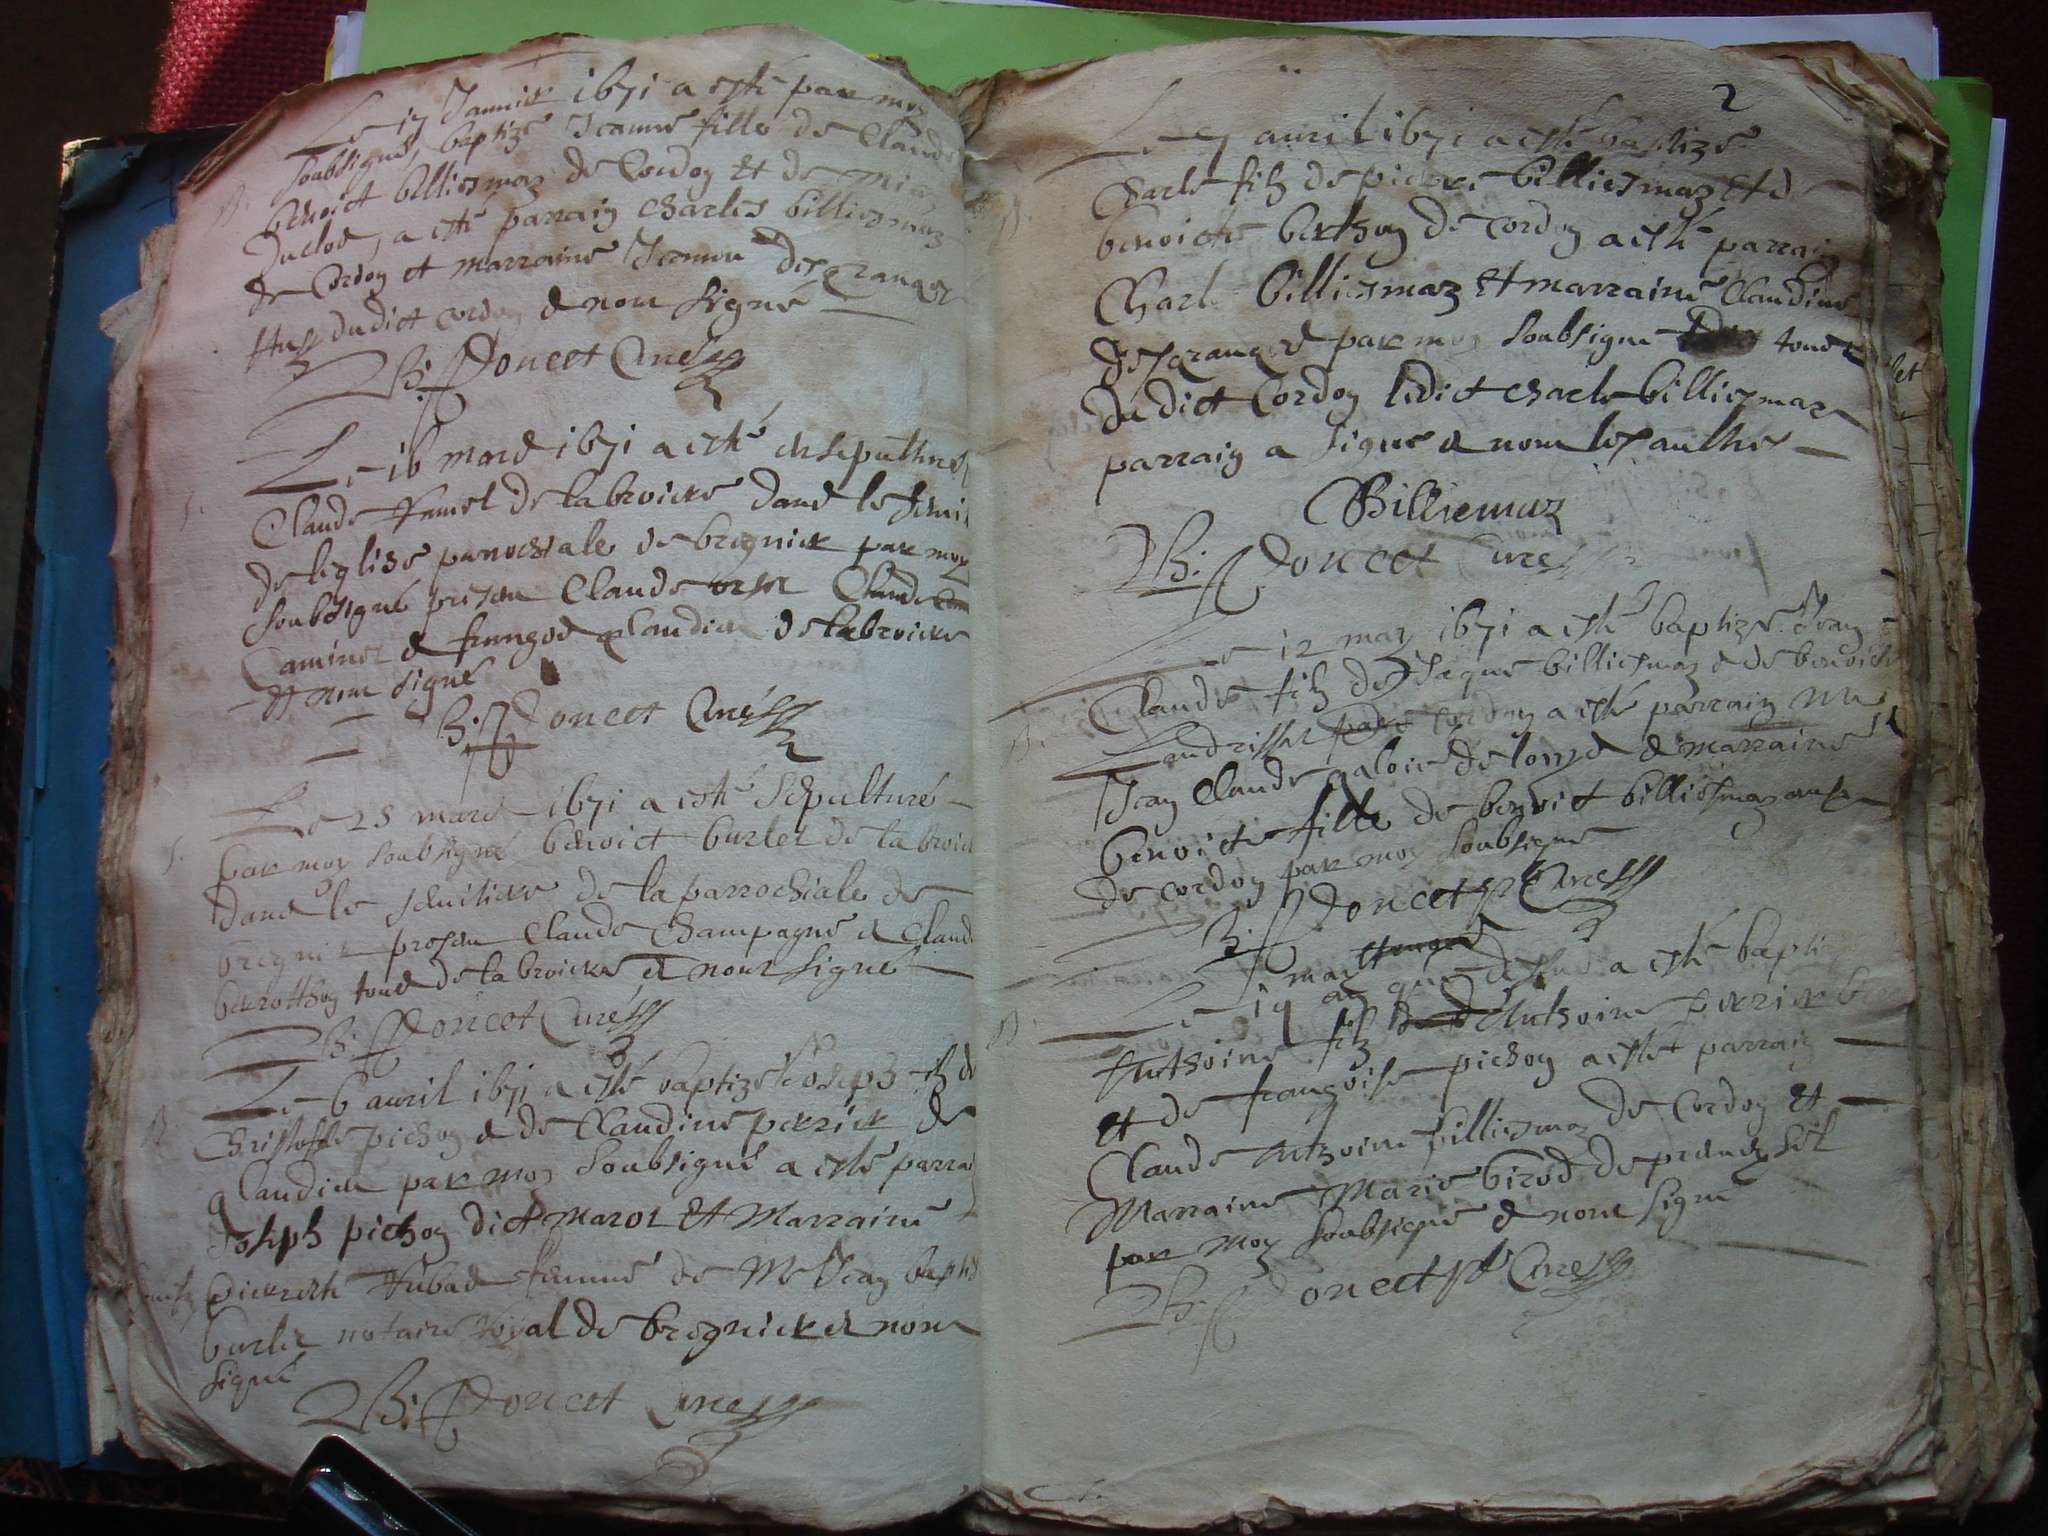 Le 17 Janvier 1671 a esté par moy
soubsigné, baptizé Jeanne fille de Claude
B.
benoict billiesmaz de Cordoy et de
duclos, a esté parrain Charles billiesmaz
de Cordoy et marraine Jeanne desgranges
dudict Cordoy & nont signé
B. Doncet Curé
Le 16 mars 1671 a esté ensepulturé
S.
Claude de labroiere dans le
de leglise parrochiale de bregnier par moy
soubsigné presans Claude Claude
Caminet & françois glandier de labroiere
et nont signé
B. Doncet Curé
Le 25 mars 1671 a esté sepulturé
S.
par moy soubsigné benoict burlet de labroiere
dans le semitiere de la parrochiale de
bregnier presans Claude Champagne & Claude
tous de labroiere et nont signé
B. Doncet Curé
Le 6 auril 1671 a esté baptizé Joseph filz de
B.
Christofle pichoy & de Claudine perrier de
glandieu par moy soubsigné a esté parrain
Joseph pichoy dict marot et Marraine
femme de Me Jean baptiste
burlet notaire royal de bregnier & nont
signé
B. Doncet Curé
2
Le 7 auril 1671 a esté baptizé
B.
Charle filz de pierre billiesmaz et d
benoicte berthoy de Cordoy a esté parrain
Charle billiesmaz et marraine Claudine
desgranges par moy soubsigne tous
dudict Cordoy ledict Charle billiesmaz
parrain a signé & nom les aultres
Billiemaz
B. Doncet Curé
Le 12 may 1671 a esté baptizé Jean
B.
Claude filz de Jaque billiesmaz & de benoicte
de Cordoy a esté parrain
Jean Claude & marraine
benoicte fille de benoict billiesmaz
de Cordoy par moy soubsigné
B. Doncet Curé
may
Le 19 que dessus a esté baptizé
B.
Anthoine filz d'Anthoine perrier
et de françoise pichoy a esté parrain
Claude Anthoine billiesmaz de Cordoy et
Marraine Marie birod de
par moy soubsigné & nont signé
B. Doncet Curé